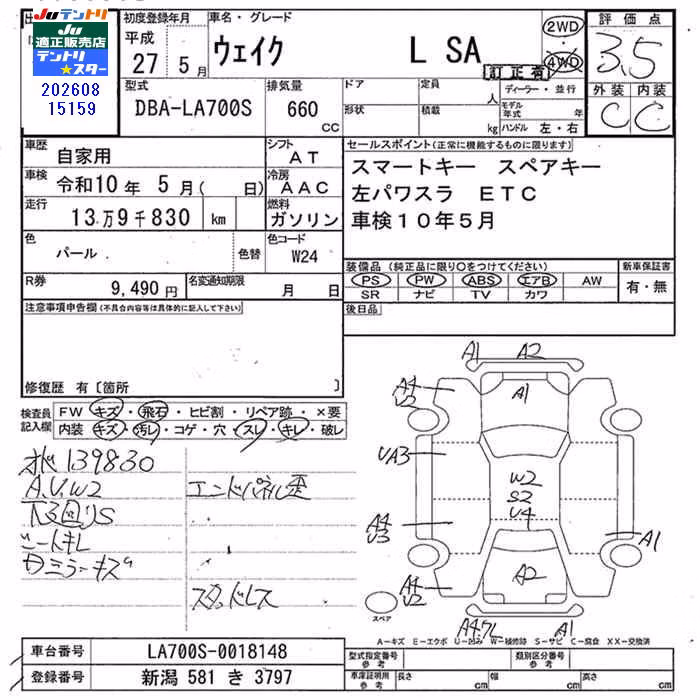 JUテントリ
JU 適正販売店
テントリ
★スター
202608
15159
初度登録年月
平成
27 5月
車名・グレード
ウェイク L SA
2WD
4WD
訂正有
評価点
3.5
外装 内装
C C
型式
DBA-LA700S
排気量
660
CC
ドア
形状
定員
人
積載
kg
ディーラー・並行
モデル年式 年
ハンドル 左・右
車歴
自家用
シフト
AT
車検
令和10年 5月( 日)
冷房
AAC
走行
13万9千830 km
燃料
ガソリン
色
パール
色替
色コード
W24
R券
9,490 円
名変通知期限
月 日
セールスポイント(正常に機能するものに限ります)
スマートキー スペアキー
左パワスラ ETC
車検10年5月
装備品 (純正品に限り○をつけてください)
新車保証書
PS PW ABS エアB AW
SR ナビ TV カワ
有・無
後日品
注意事項申告欄(不具合内容等は具体的に記入して下さい)
修復歴 有〔箇所 〕
検査員
記入欄
FW キズ・飛石・ヒビ割・リペア跡・×要
内装 キズ・汚レ・コゲ・穴・スレ・キレ・破レ
139830
A.U.W2
下回りS
シートキレ
ミラーキズ
エンドパネル歪
スタッドレス
A1 A2
A4
U2
A1
UA3
W2
S2
U4
A4
U3
A1
A4
U2
A2
スペア
A1
A-キズ E-エクボ U-凹み W-補修跡 S-サビ C-腐食 XX-交換済
車台番号
LA700S-0018148
登録番号
新潟 581 き 3797
型式指定番号
参考
類別区分番号
参考
車庫証明用
参考
長さ cm
幅 cm
高さ cm